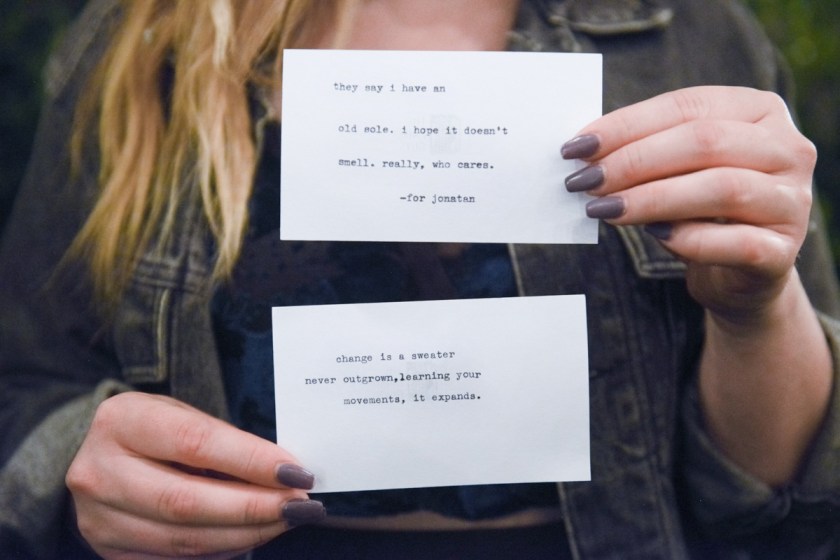 they say i have an
old sole. i hope it doesn't
smell. really, who cares.
-for jonatan
change is a sweater
never outgrown,learning your
movements, it expands.